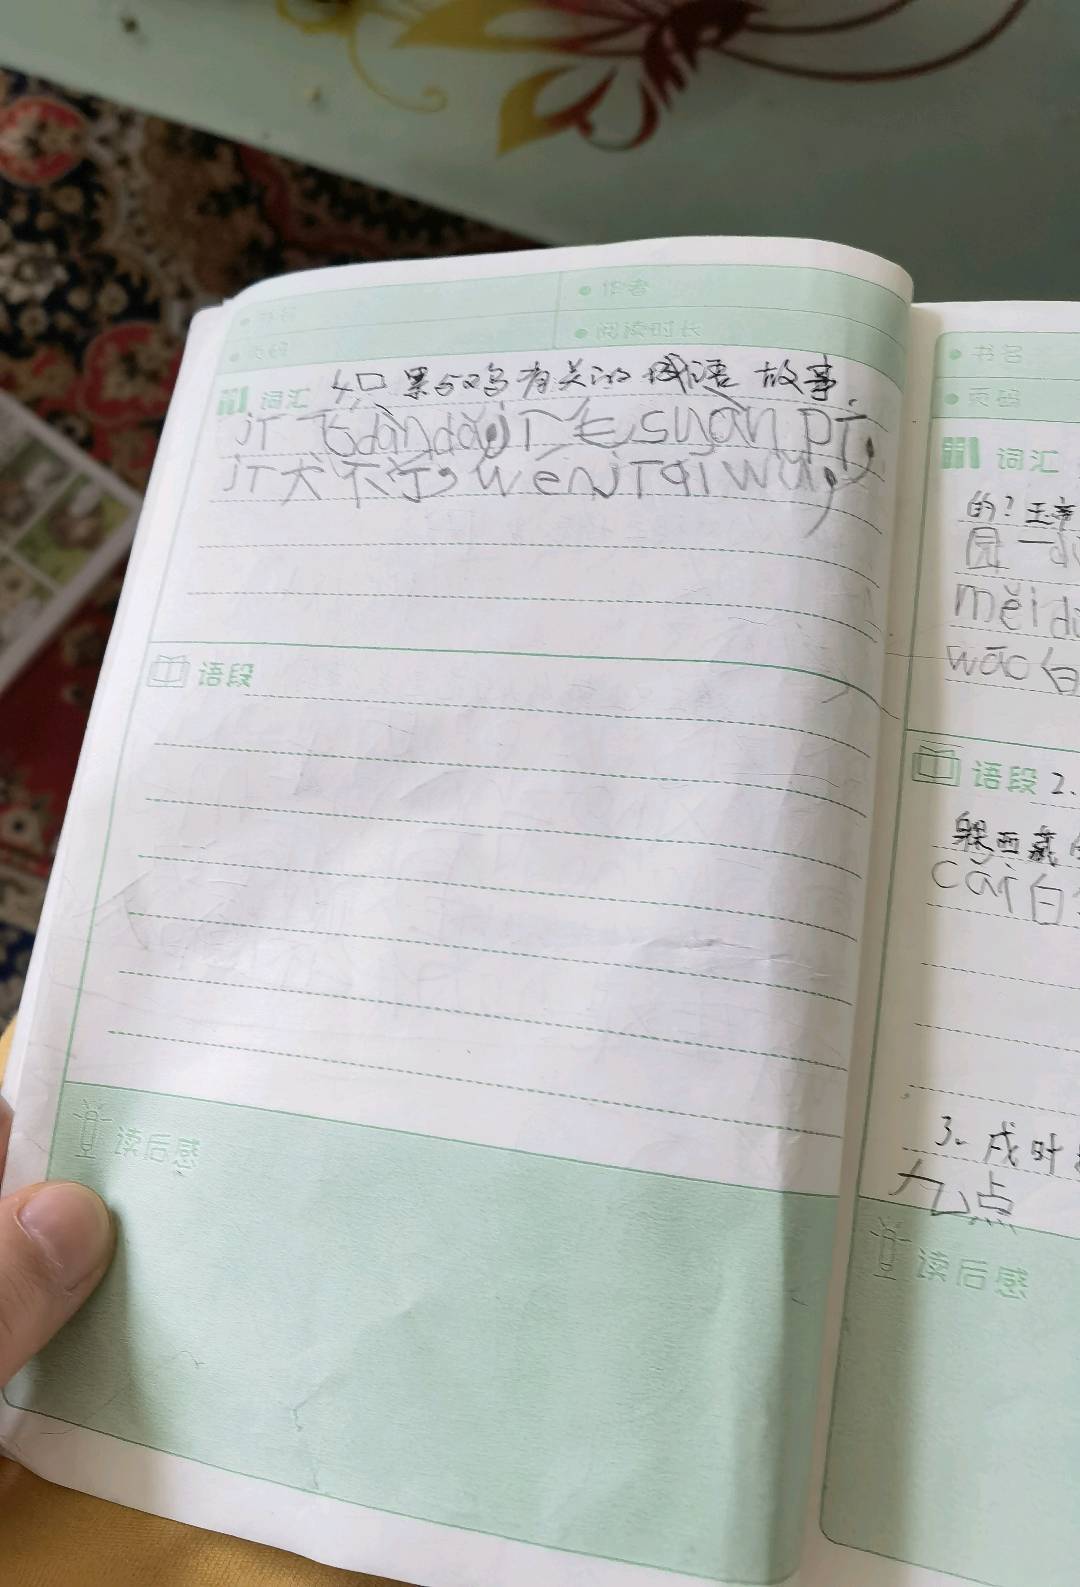 书名
作者
页码
阅读时长
词汇 4. 只累与鸡有关的成语故事.
jī飞dàn dǎ, jī毛suàn pí,
jī犬不宁, wén jī qǐ wǔ,
语段
读后感
书名
页码
词汇
的?玉帝
园一
měi
wāo白
语段 2.
西藏
cǎi白
3. 戌时
九点
读后感